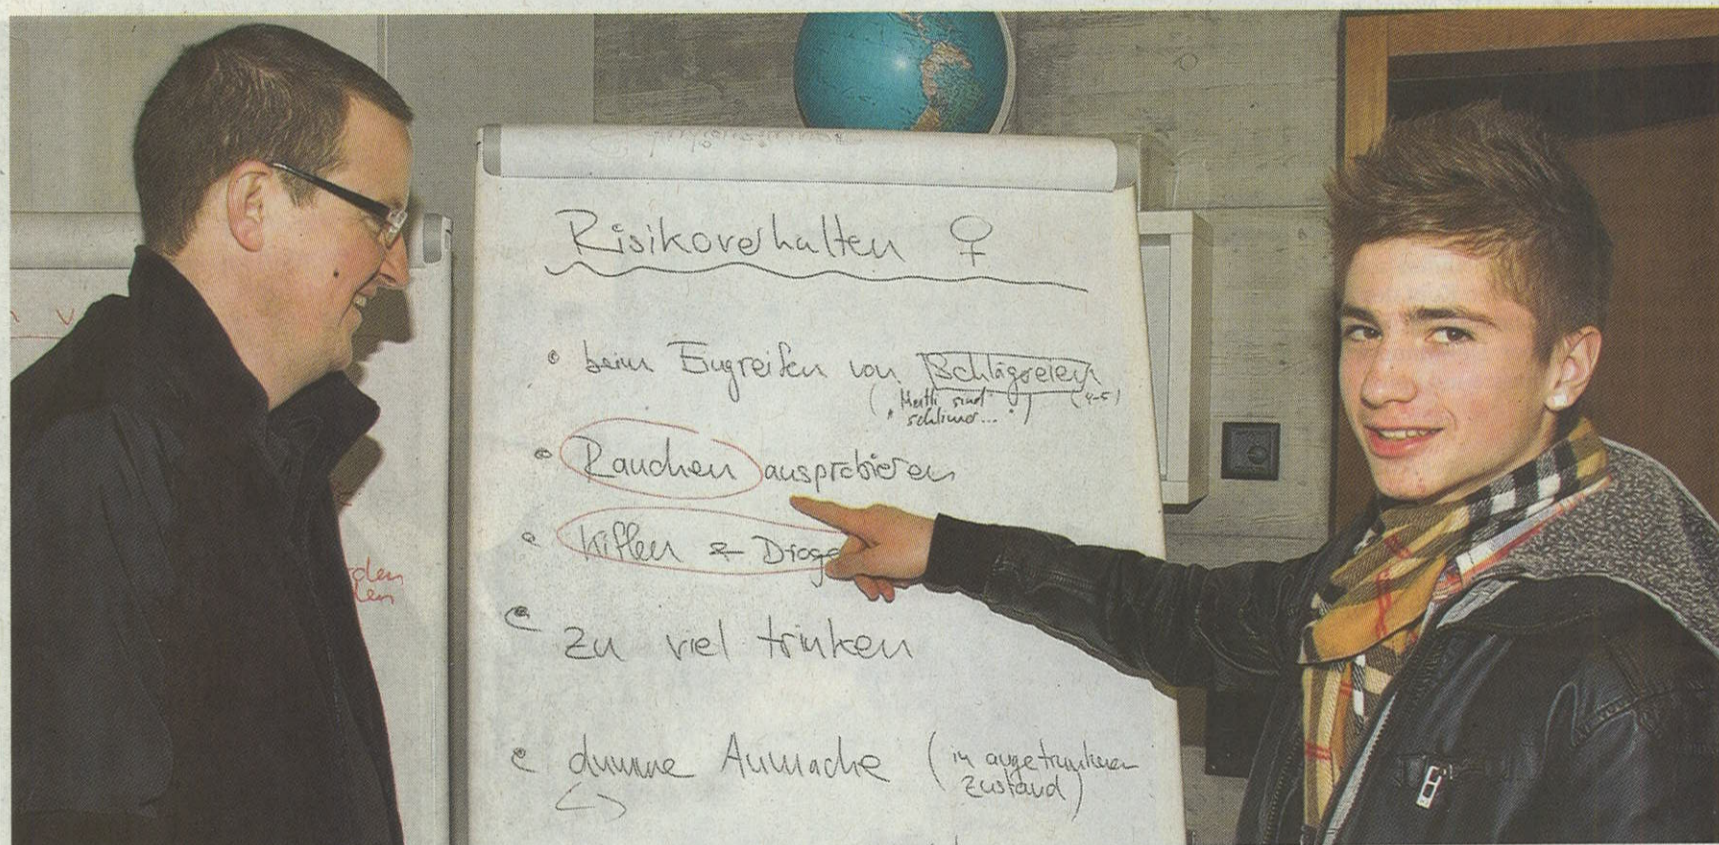 Risikoverhalten ♀
• beim Eingreifen von Schlägereien
( " Meitli sind ) (4-5)
schlimmer... "
• Rauchen ausprobieren
• Kiffen & Droge
• zu viel trinken
• dumme Anmache (in angetrunkenen
Zustand)
den
den